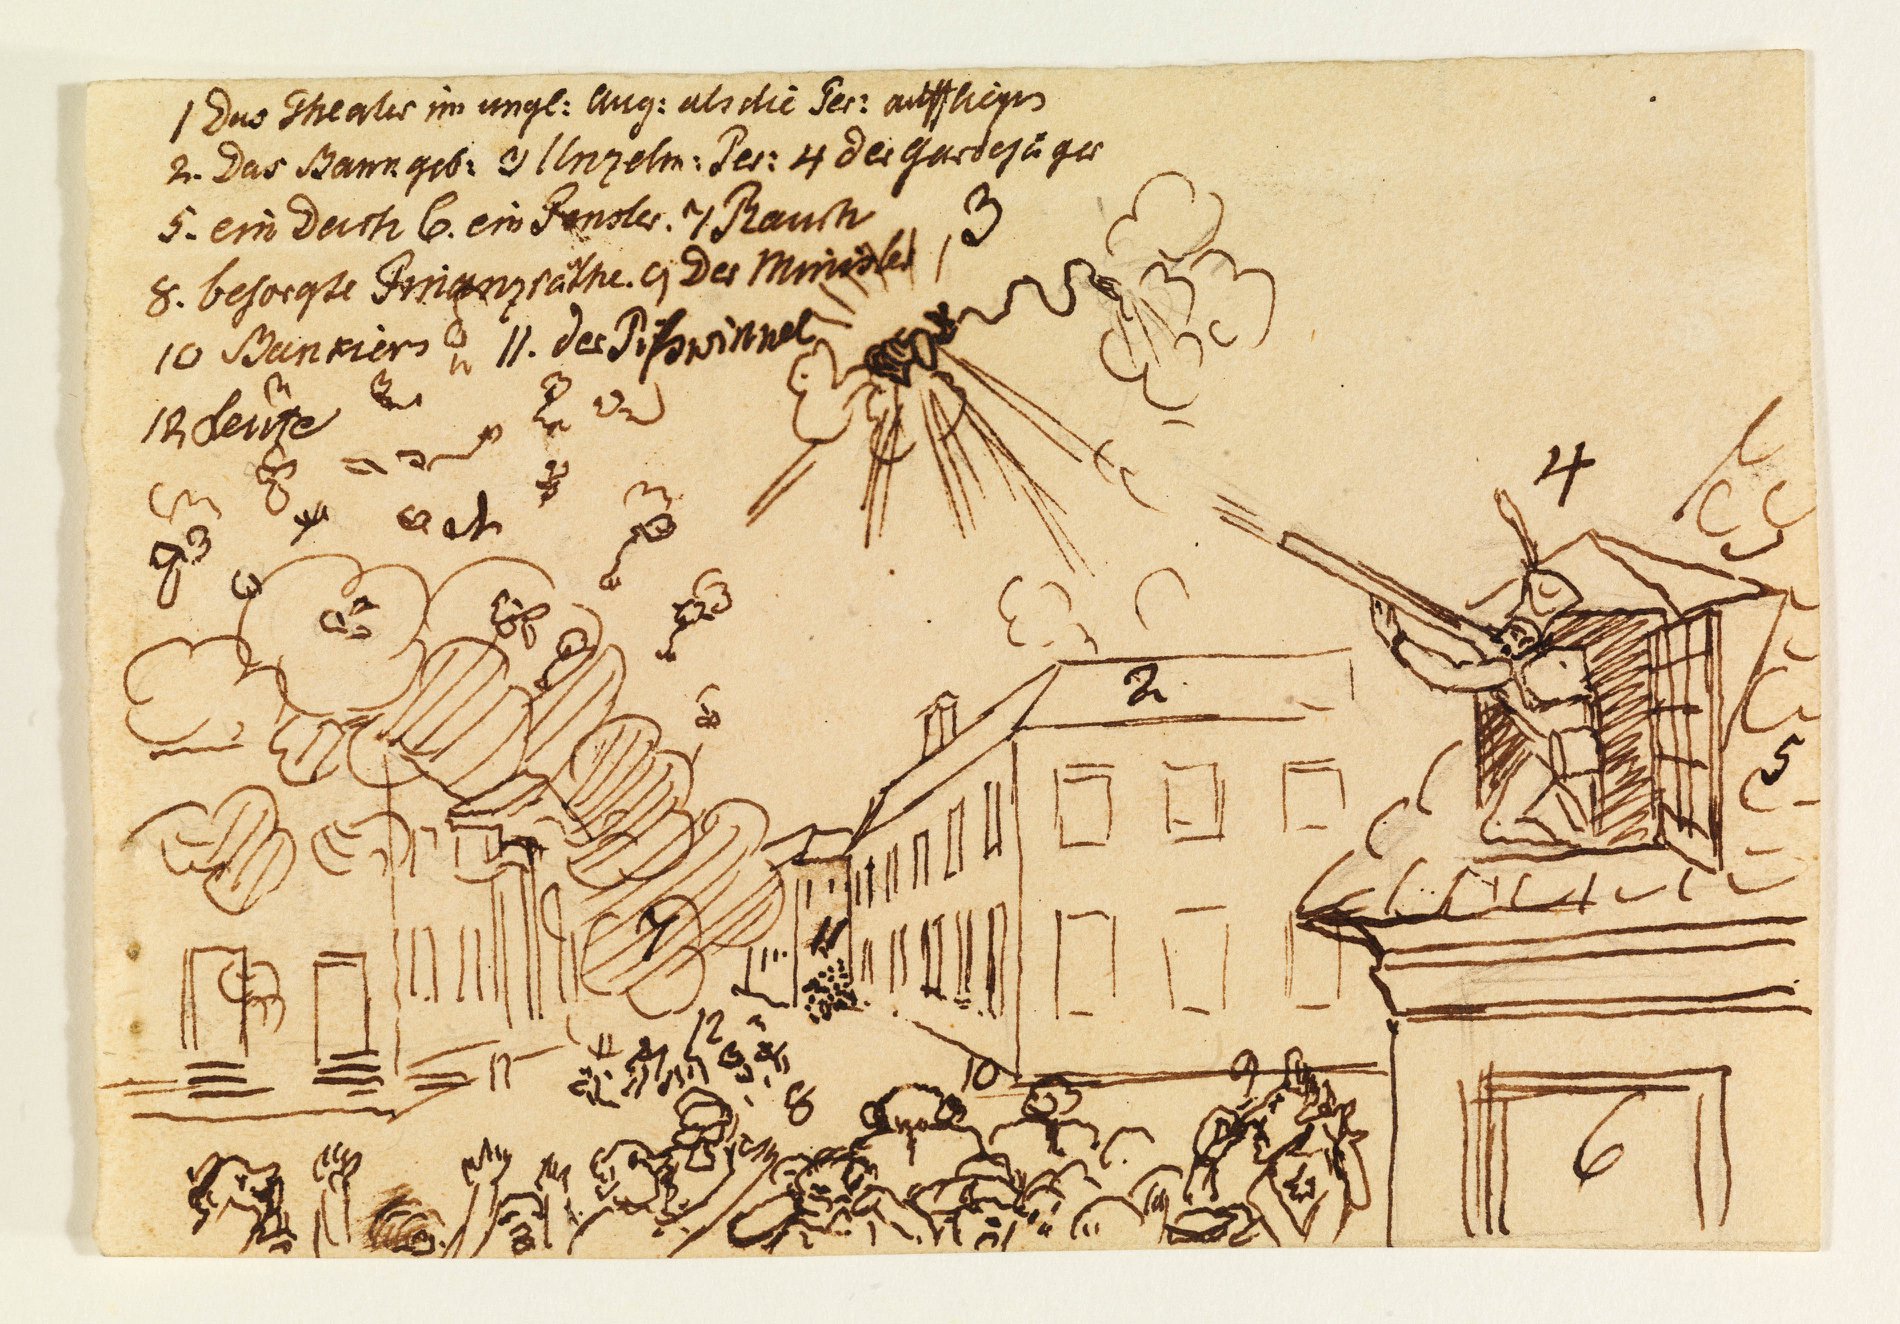 1 Das Theater im ungl: Aug: als die Per: auffliegt
2. Das Bankgeb: 3 Unzelm: Per: 4 der Gardejäger
5. ein Dach 6. ein Fenster. 7 Rauch
8. besorgte Finanzräthe. 9 Der Minister
10 Bankiers 11. der Pißwinkel
12 Leute
3
4
ach
2
5
7
11
12
8
10
9
6